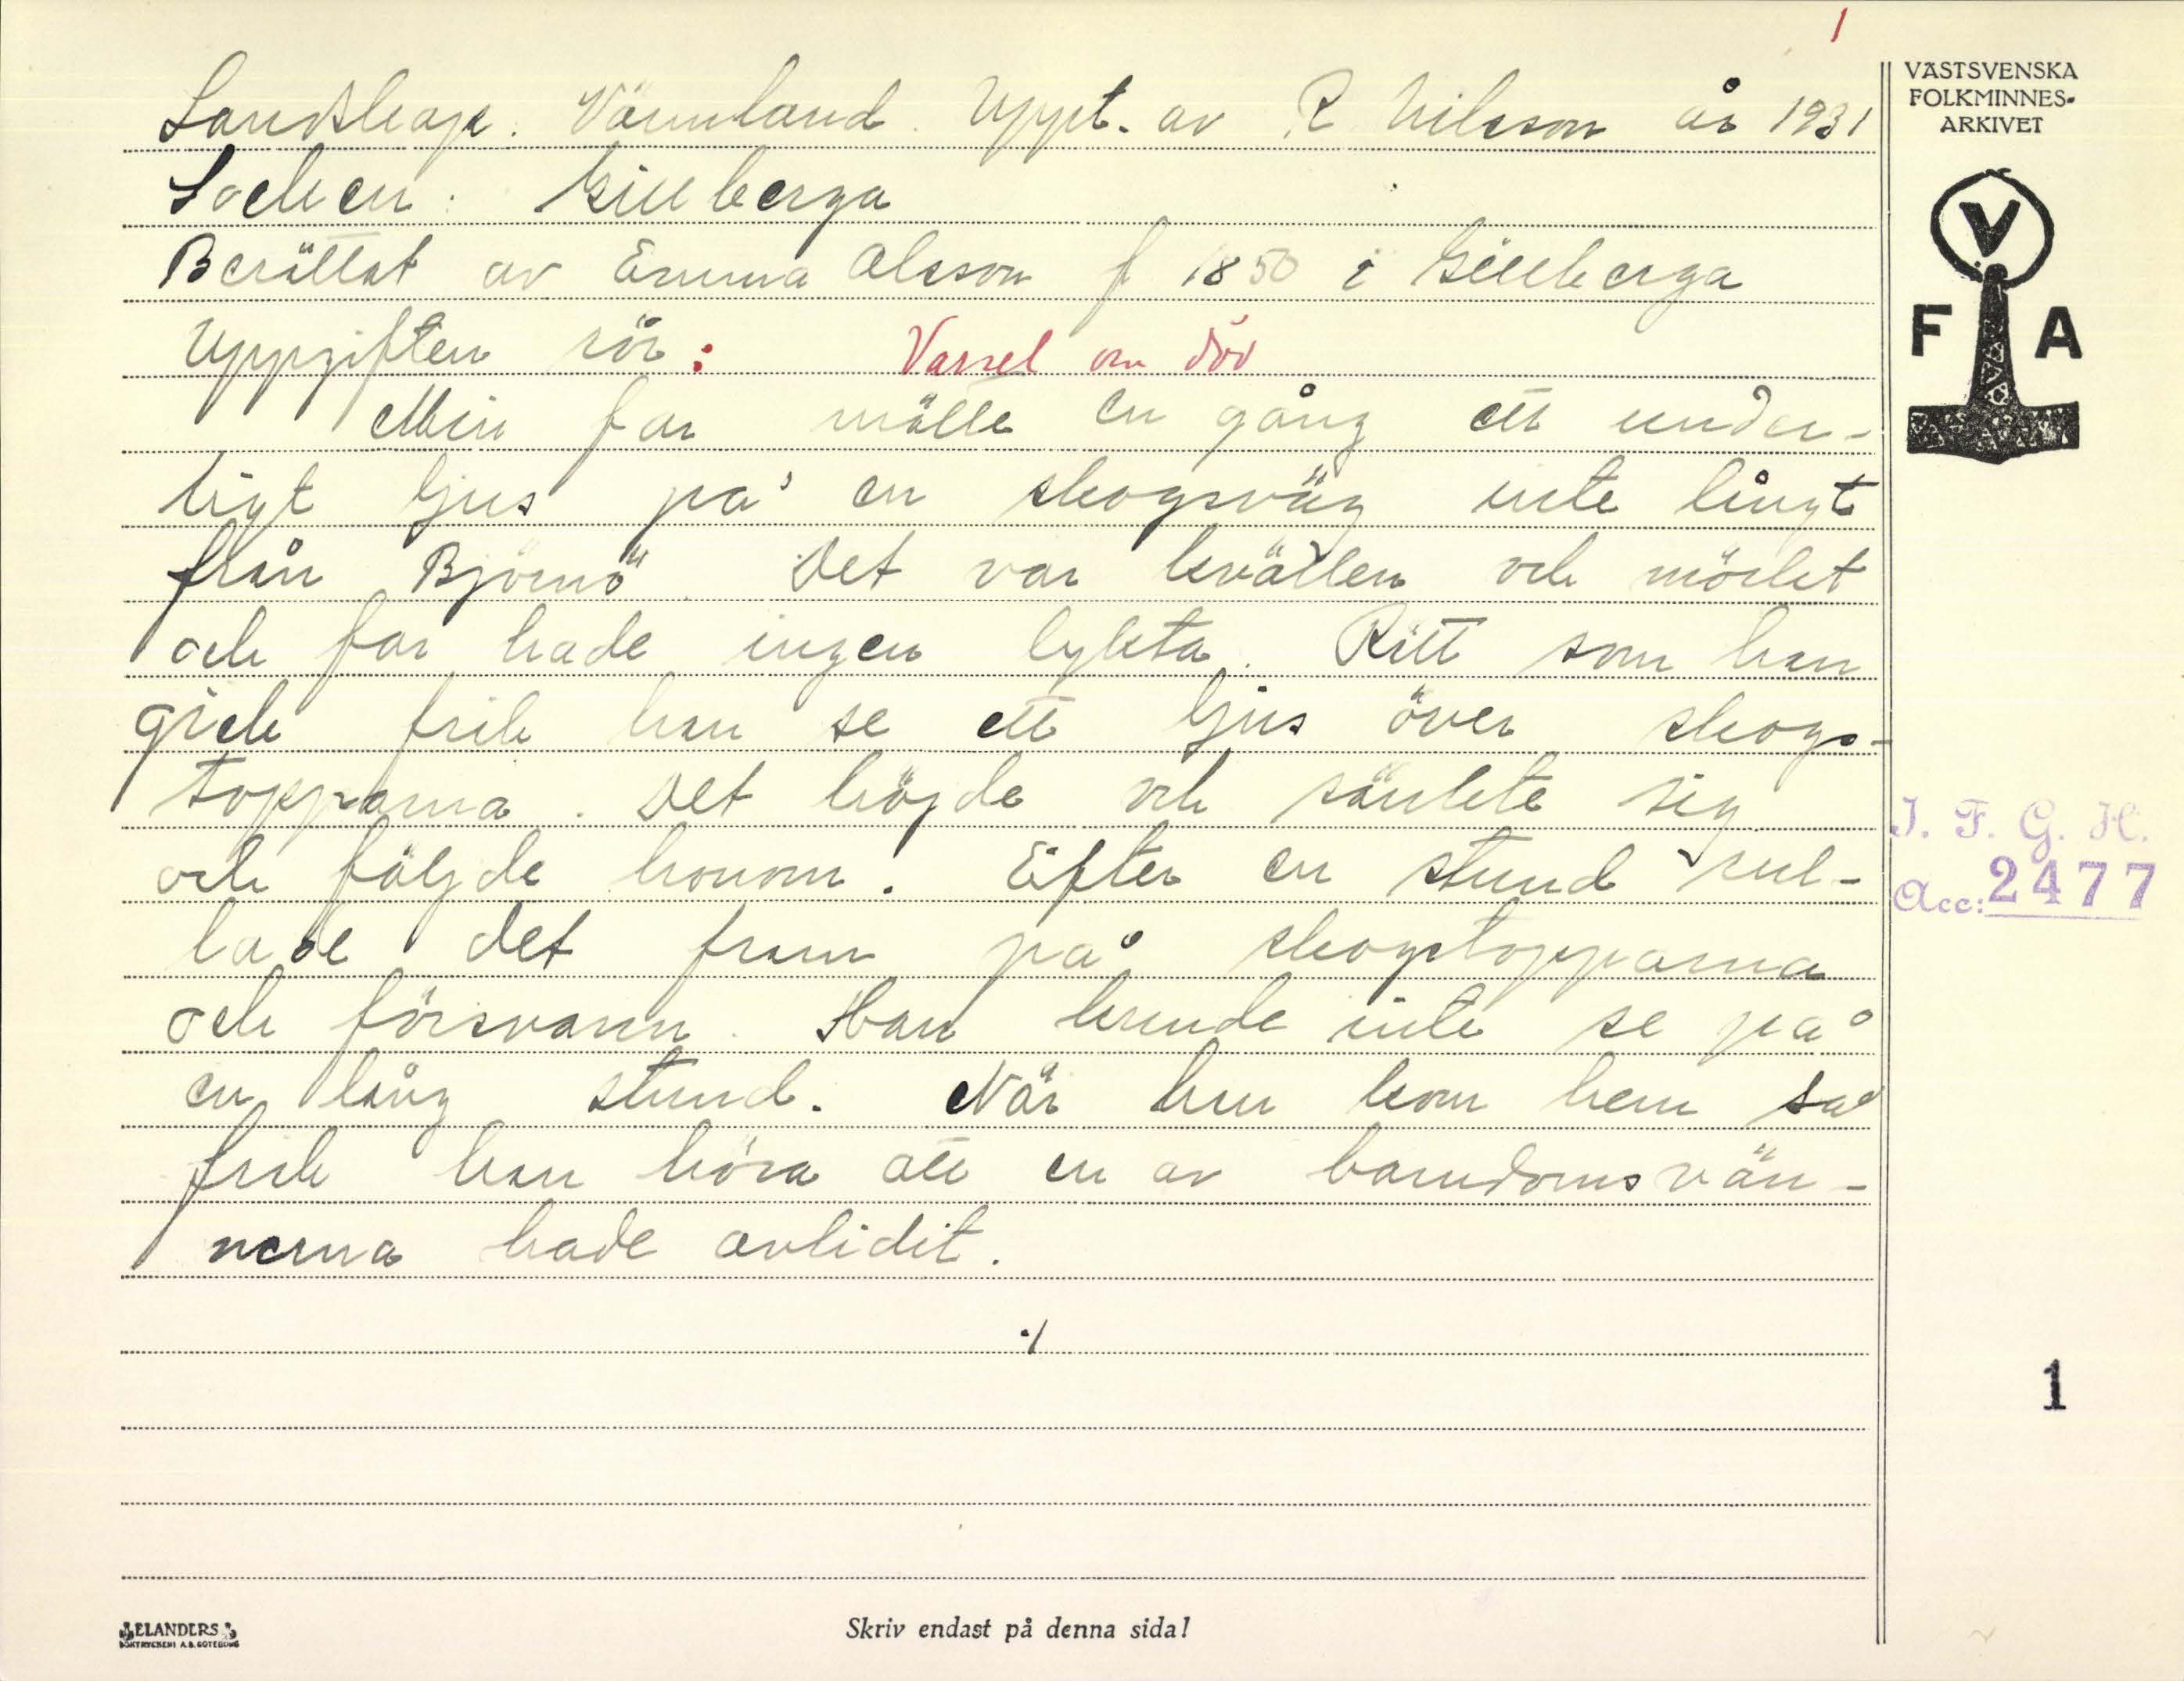 1
VÄSTSVENSKA
FOLKMINNES-
ARKIVET
V
F A
Landskap. Värmland. Uppt. av R Nilsson år 1931
Socken: Gillberga
Berättat av Emma Olsson f 1850 i Gillberga
Uppgiften rör: Varsel om död
Min far mötte en gång ett under-
ligt ljus på en skogsväg inte långt
från Björnö. Det var kvällen och mörket
och far hade ingen lykta. Rätt som han
gick fick han se ett ljus över skogs-
topparna. Det höjde och sänkte sig
och följde honom. Efter en stund rul-
lade det fram på skogstopparna
och försvann. Han kunde inte se på
en lång stund. När han kom hem så
fick han höra att en av barndomsvän-
nerna hade avlidit.
./
I. F. G. H.
Acc: 2477
1
ELANDERS
BOKTRYCKERI A.B. GÖTEBORG
Skriv endast på denna sida!